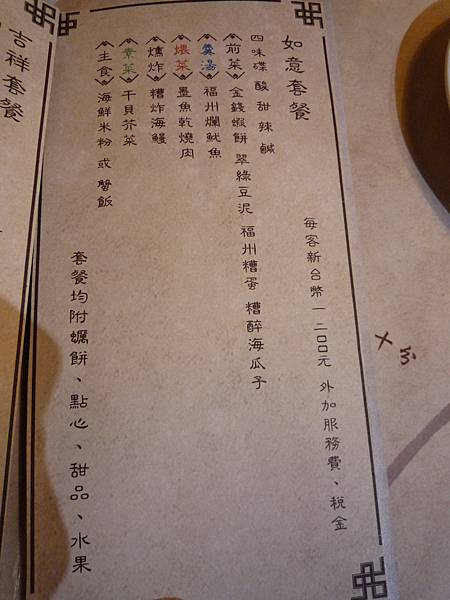 如意套餐
每客新台幣一二〇〇元 外加服務費、稅金
四味碟 酸 甜 辣 鹹
前菜 金錢蝦餅 翠綠豆泥 福州糟蛋 糟醉海瓜子
羹湯 福州爛魷魚
煨菜 墨魚乾燒肉
爊炸 糟炸海鰻
素菜 干貝芥菜
主食 海鮮米粉 或 蟹飯
套餐均附蠣餅、點心、甜品、水果
吉祥套餐